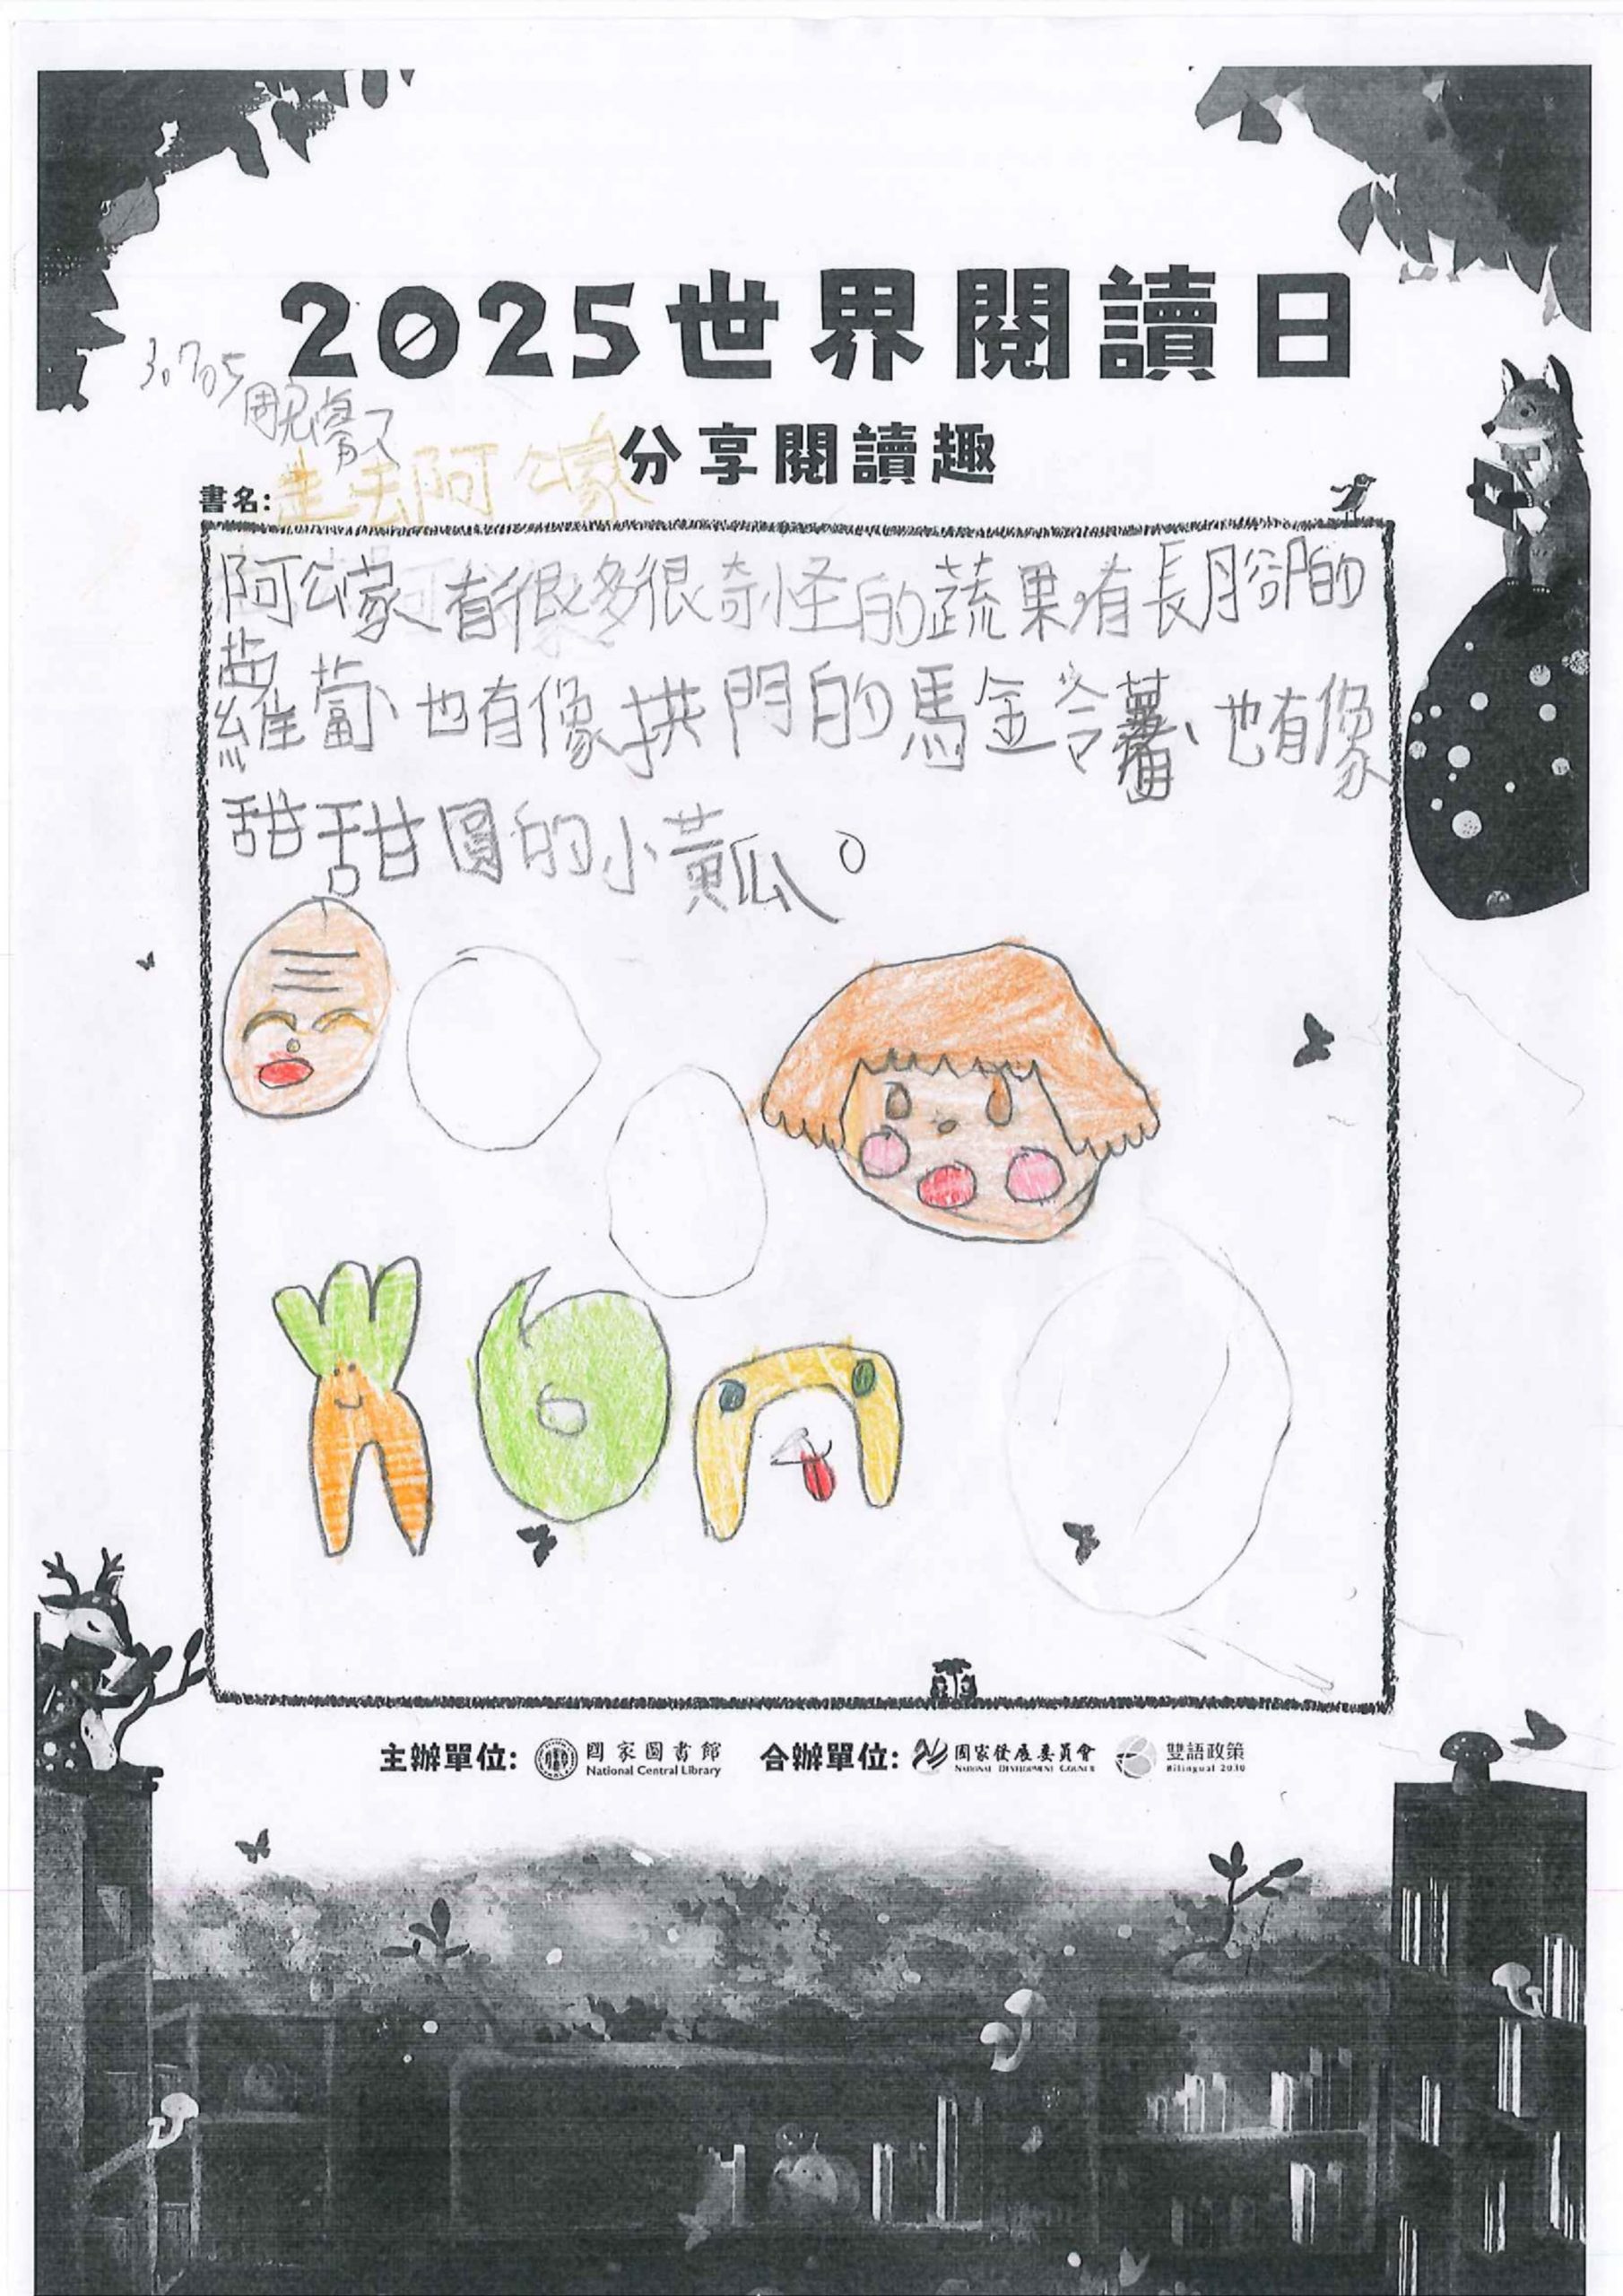 2025世界閱讀日
分享閱讀趣
書名: 走去阿公家
阿公家有很多很奇怪的蔬果有長腳的
蘿蔔、也有像拱門的馬金令薯、也有像
甜甜圓的小黃瓜。
主辦單位: 國家圖書館 National Central Library 合辦單位: 國家發展委員會 NATIONAL DEVELOPMENT COUNCIL 雙語政策 Bilingual 2030